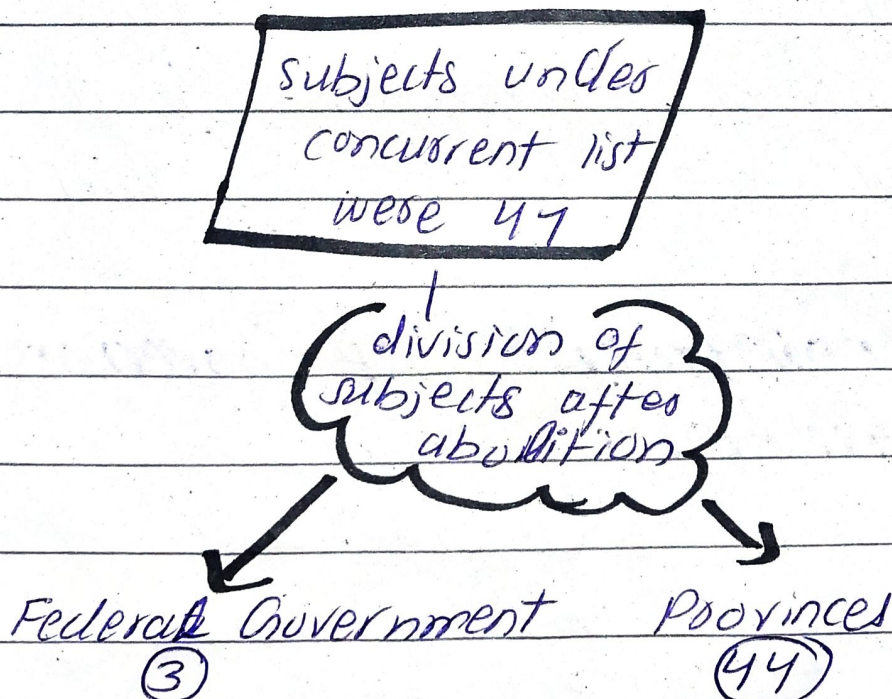 subjects under
concurrent list
were 47
division of
subjects after
abolition
Federal Government Provinces
3 44